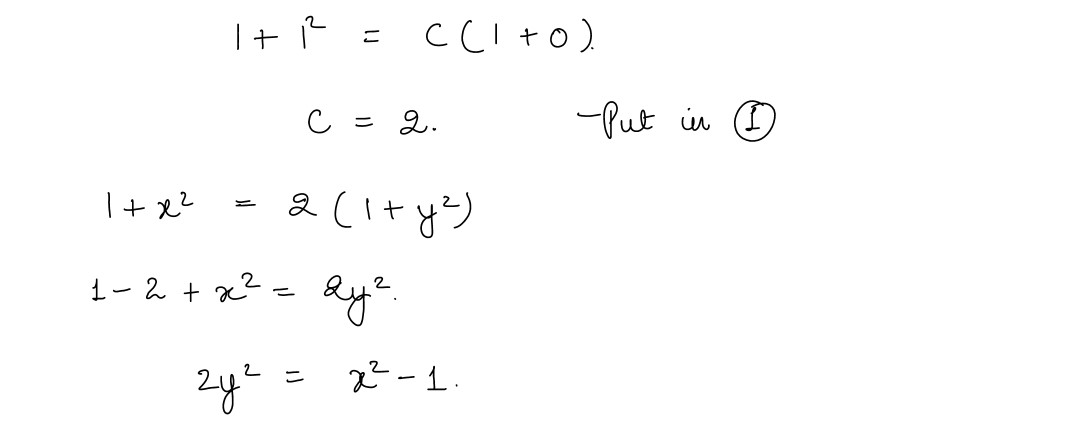 1 + 1² = C(1 + 0).
C = 2. - Put in Ⓘ
1 + x² = 2(1 + y²)
1 - 2 + x² = 2y².
2y² = x² - 1.